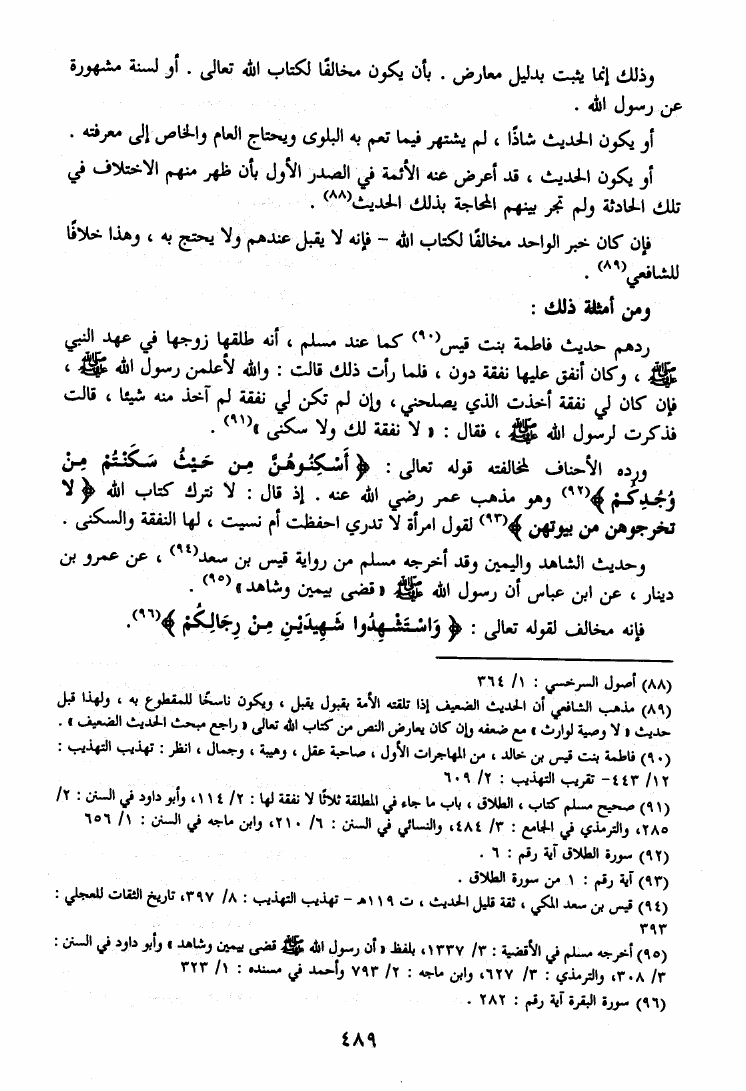 وذلك إنما يثبت بدليل معارض . بأن يكون مخالفًا لكتاب الله تعالى . أو لسنة مشهورة
عن رسول الله .
أو يكون الحديث شاذًا ، لم يشتهر فيما تعم به البلوى ويحتاج العام والخاص إلى معرفته .
أو يكون الحديث ، قد أعرض عنه الأئمة في الصدر الأول بأن ظهر منهم الاختلاف في
تلك الحادثة ولم تجر بينهم المحاجة بذلك الحديث(٨٨) .
فإن كان خبر الواحد مخالفًا لكتاب الله – فإنه لا يقبل عندهم ولا يحتج به ، وهذا خلافًا
للشافعي(٨٩) .
ومن أمثلة ذلك :
ردهم حديث فاطمة بنت قيس(٩٠) كما عند مسلم ، أنه طلقها زوجها في عهد النبي
ﷺ ، وكان أنفق عليها نفقة دون ، فلما رأت ذلك قالت : والله لأعلمن رسول الله ﷺ ،
فإن كان لي نفقة أخذت الذي يصلحني ، وإن لم تكن لي نفقة لم آخذ منه شيئا ، قالت
فذكرت لرسول الله ﷺ ، فقال : « لا نفقة لك ولا سكنى »(٩١) .
ورده الأحناف لمخالفته قوله تعالى : ﴿ أَسْكِنُوهُنَّ مِن حَيْثُ سَكَنْتُمْ مِنْ
وُجْدِكُمْ ﴾(٩٢) وهو مذهب عمر رضي الله عنه . إذ قال : لا نترك كتاب الله ﴿ لا
تخرجوهن من بيوتهن ﴾(٩٣) لقول امرأة لا تدري احفظت أم نسيت ، لها النفقة والسكنى .
وحديث الشاهد واليمين وقد أخرجه مسلم من رواية قيس بن سعد(٩٤) ، عن عمرو بن
دينار ، عن ابن عباس أن رسول الله ﷺ « قضى بيمين وشاهد »(٩٥) .
فإنه مخالف لقوله تعالى : ﴿ وَاسْتَشْهِدُوا شَهِيدَيْنِ مِنْ رِجَالِكُمْ ﴾(٩٦).
(٨٨) أصول السرخسي : ١/ ٣٦٤
(٨٩) مذهب الشافعي أن الحديث الضعيف إذا تلقته الأمة بقبول يقبل ، ويكون ناسخًا للمقطوع به ، ولهذا قبل
حديث « لا وصية لوارث » مع ضعفه وإن كان يعارض النص من كتاب الله تعالى « راجع مبحث الحديث الضعيف » .
(٩٠) فاطمة بنت قيس بن خالد ، من المهاجرات الأول ، صاحبة عقل ، وهيبة ، وجمال ، انظر : تهذيب التهذيب :
١٢/ ٤٤٣- تقريب التهذيب : ٢/ ٦٠٩
(٩١) صحيح مسلم كتاب ، الطلاق ، باب ما جاء في المطلقة ثلاثًا لا نفقة لها : ٢/ ١١٤، وأبو داود في السنن : ٢/
٢٨٥، والترمذي في الجامع : ٣/ ٤٨٤، والنسائي في السنن : ٦/ ٢١٠، وابن ماجه في السنن : ١/ ٦٥٦
(٩٢) سورة الطلاق آية رقم : ٦ .
(٩٣) آية رقم : ١ من سورة الطلاق .
(٩٤) قيس بن سعد المكي ، ثقة قليل الحديث ، ت ١١٩هـ – تهذيب التهذيب : ٨/ ٣٩٧، تاريخ الثقات للعجلي :
٣٩٣
(٩٥) أخرجه مسلم في الأقضية : ٣/ ١٣٣٧، بلفظ « أن رسول الله ﷺ قضى بيمين وشاهد » وأبو داود في السنن :
٣/ ٣٠٨، والترمذي : ٣/ ٦٢٧، وابن ماجه : ٢/ ٧٩٣ وأحمد في مسنده : ١/ ٣٢٣
(٩٦) سورة البقرة آية رقم : ٢٨٢ .
٤٨٩